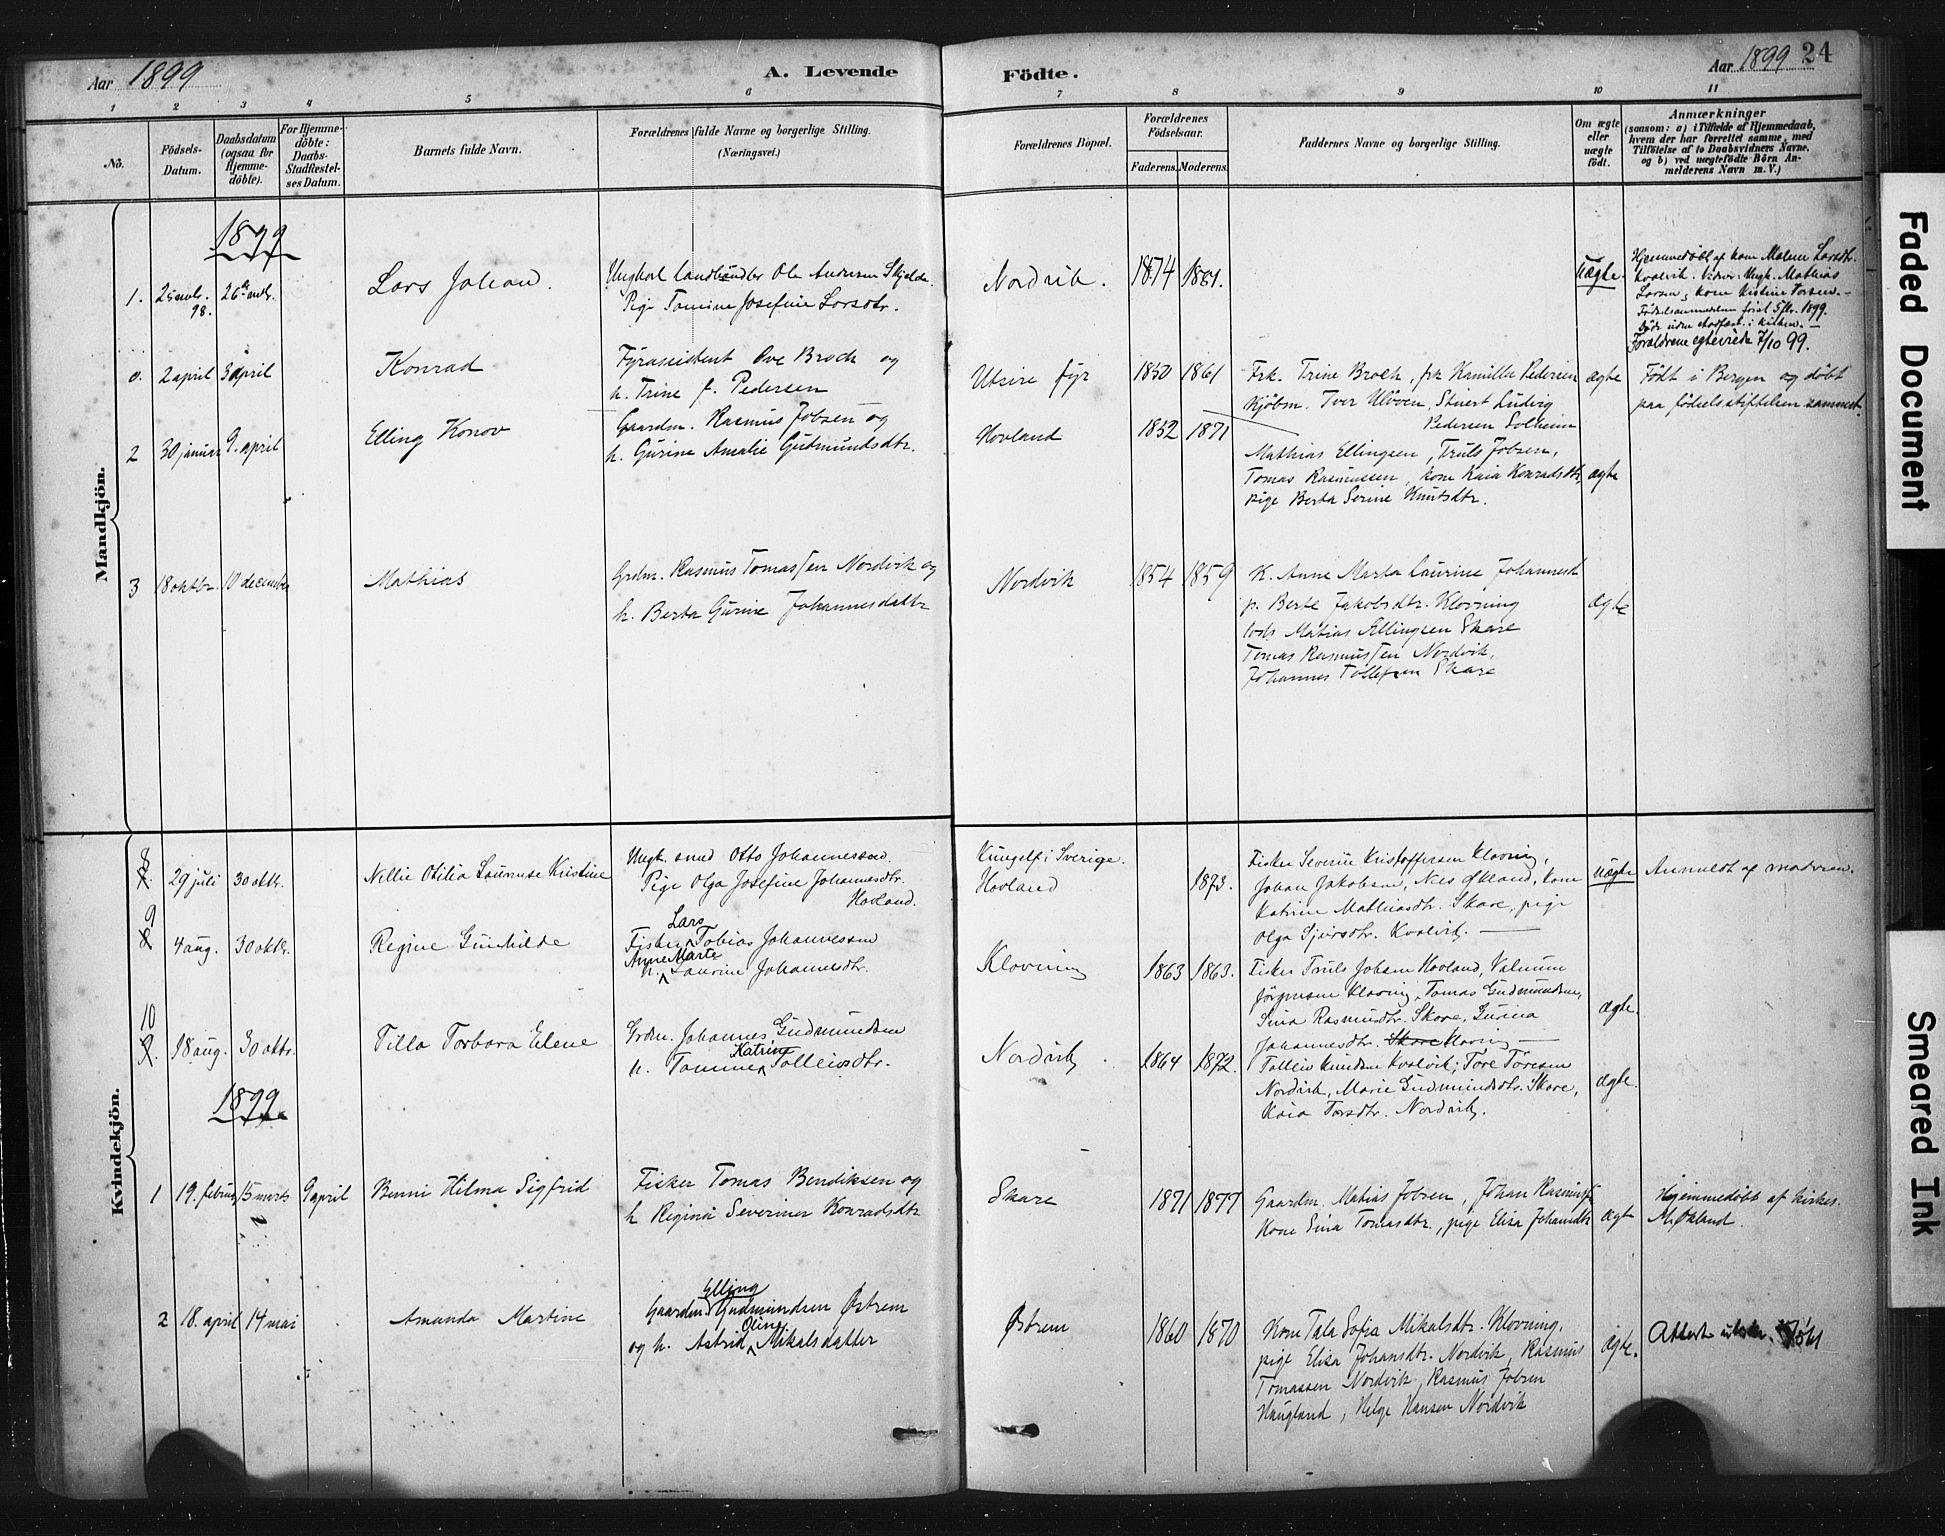 Aar 1899
A. Levende
Födte.
Aar 1899 24
1 2 3 4 5 6 7 8 9 10 11
Nö.
Födsels-
Datum.
Daabsdatum
(ogsaa for
Hjemme-
döbte).
For Hjemme-
döbte:
Daabs-
Stadfæstel-
ses Datum.
Barnets fulde Navn.
Forældrenes fulde Navne og borgerlige Stilling.
(Næringsvei.)
Forældrenes Bopæl.
Forældrenes
Födselsaar.
Faderens. Moderens.
Faddernes Navne og borgerlige Stilling.
Om ægte
eller
uægte
födt.
Anmærkninger
(saasom: a) i Tilfælde af Hjemmedaab,
hvem der har forrettet samme, med
Tilföielse af to Daabsvidners Navne,
og b) ved uægtefödte Börn An-
melderens Navn m. V.)
Mandkjön.
1899
1. 98. Lars Johan.
Ungkarl Landhandler Ole Andersen Skjelde.
Pige Tomine Josefine Larsdtr.
Nordvik. 1874
uægte
Hjemmedøbt af kone Malene Larsdtr.
Kvalvik. Vidner: Ungk. Mathias
Larsen, kone Kristine
1899.
Forældrene egteviede 7/10 99.
0. 2 april 3 april Konrad
Fyrassistent Ove Broch og
h. Trine f. Pedersen
Utsire fyr 1850 1861
Frk. Trine Broch, frk Kamilla Pedersen
Kjøbm. Iver Stuert Ludvig
Pedersen Solheim
ægte
Født i Bergen og døbt
paa fødselsstiftelsen sammest.
2 30 januar 9. april Elling Konov
Gaardm. Rasmus Jobsen og
h. Gurine Amalie Gudmundsdtr.
Hovland 1852 1871
Mathias Ellingsen, Truls Jobsen,
Tomas Rasmussen, kone Kaia Konradsdtr,
pige Berta Serine Knutsdtr.
ægte
3 18 oktbr. 10 december Mathias
Grdm. Rasmus Tomassen Nordvik og
h. Berta Gurine Johannesdattr
Nordvik 1854 1859
K. Anne Marta Laurine Johannesd
p. Berte Jakobsdtr. Klovning
Matias Ellingsen Skare
Tomas Rasmussen Nordvik,
Johannes Tollefsen Skare
ægte
Kvindekjön.
8 29 juli 30 oktbr. Nellie Otilia Kristine
Ungk. smed Otto Johannessen.
Pige Olga Josefine Johannesdtr.
Hovland.
Kungelf i Sverige.
Hovland 1873.
Fisker Severin Kristoffersen Klovning,
Johan Jakobsen, Nils Økland, kone
Katrine Mathiasdtr. Skare, pige
Olga Sjursdtr. Kvalvik.
uægte
Anmeldt af moderen.
9 4 aug. 30 oktbr. Regine Gunhilde
Lars
Fisker Tobias Johannessen
Anne Marte
h. Laurine Johannesdtr.
Klovning 1863 1863.
Fisker Truls Jobsen Hovland,
Jørgensen Klovning, Tomas Gudmundsen,
Sina Rasmusdtr. Skare,
Johannesdtr. Skare Klovning
ægte.
10 18 aug. 30 oktbr. Tilla Torbora Elene
Grdm. Johannes Gudmundsen
Katrine
h. Tolleivsdtr.
Nordvik 1864 1872.
Tolleiv Knudsen Kvalvik; Tore Toresen
Nordvik, Marie Gudmundsdtr. Skare,
Kaia Torsdtr. Nordvik.
ægte.
1899
1 19. februar 15 marts 9 april Benni Hilma Sigfrid
Fisker Tomas Bendiksen og
h Regina Severine Konradsdtr
Skare 1871 1877
Gaardm. Matias Jobsen, Johan Rasmuss
Kone Sina Tomasdtr., pige Elisa Johansdtr
ægte
Hjemmedøbt af kirkes.
M. Økland.
2 18. april 14 mai Amanda Martine
Elling
Gaardm. Gudmundsen Østrem
Oline
og h. Astrid Mikalsdatter
Østrem 1860 1870
Kone Tala Sofia Mikalsdtr. Klovning,
pige Elisa Johansdtr. Nordvik, Rasmus
Tomassen Nordvik, Rasmus Jobsen
Haugland, Helge Hansen Nordvik
ægte.
Attest
Faded Document
Smeared Ink